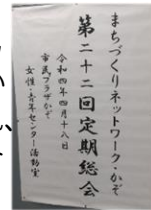 まちづくりネットワーク・かぞ
第二十二回定期総会
令和四年四月十八日
市民プラザかぞ
女性・青年センター活動室